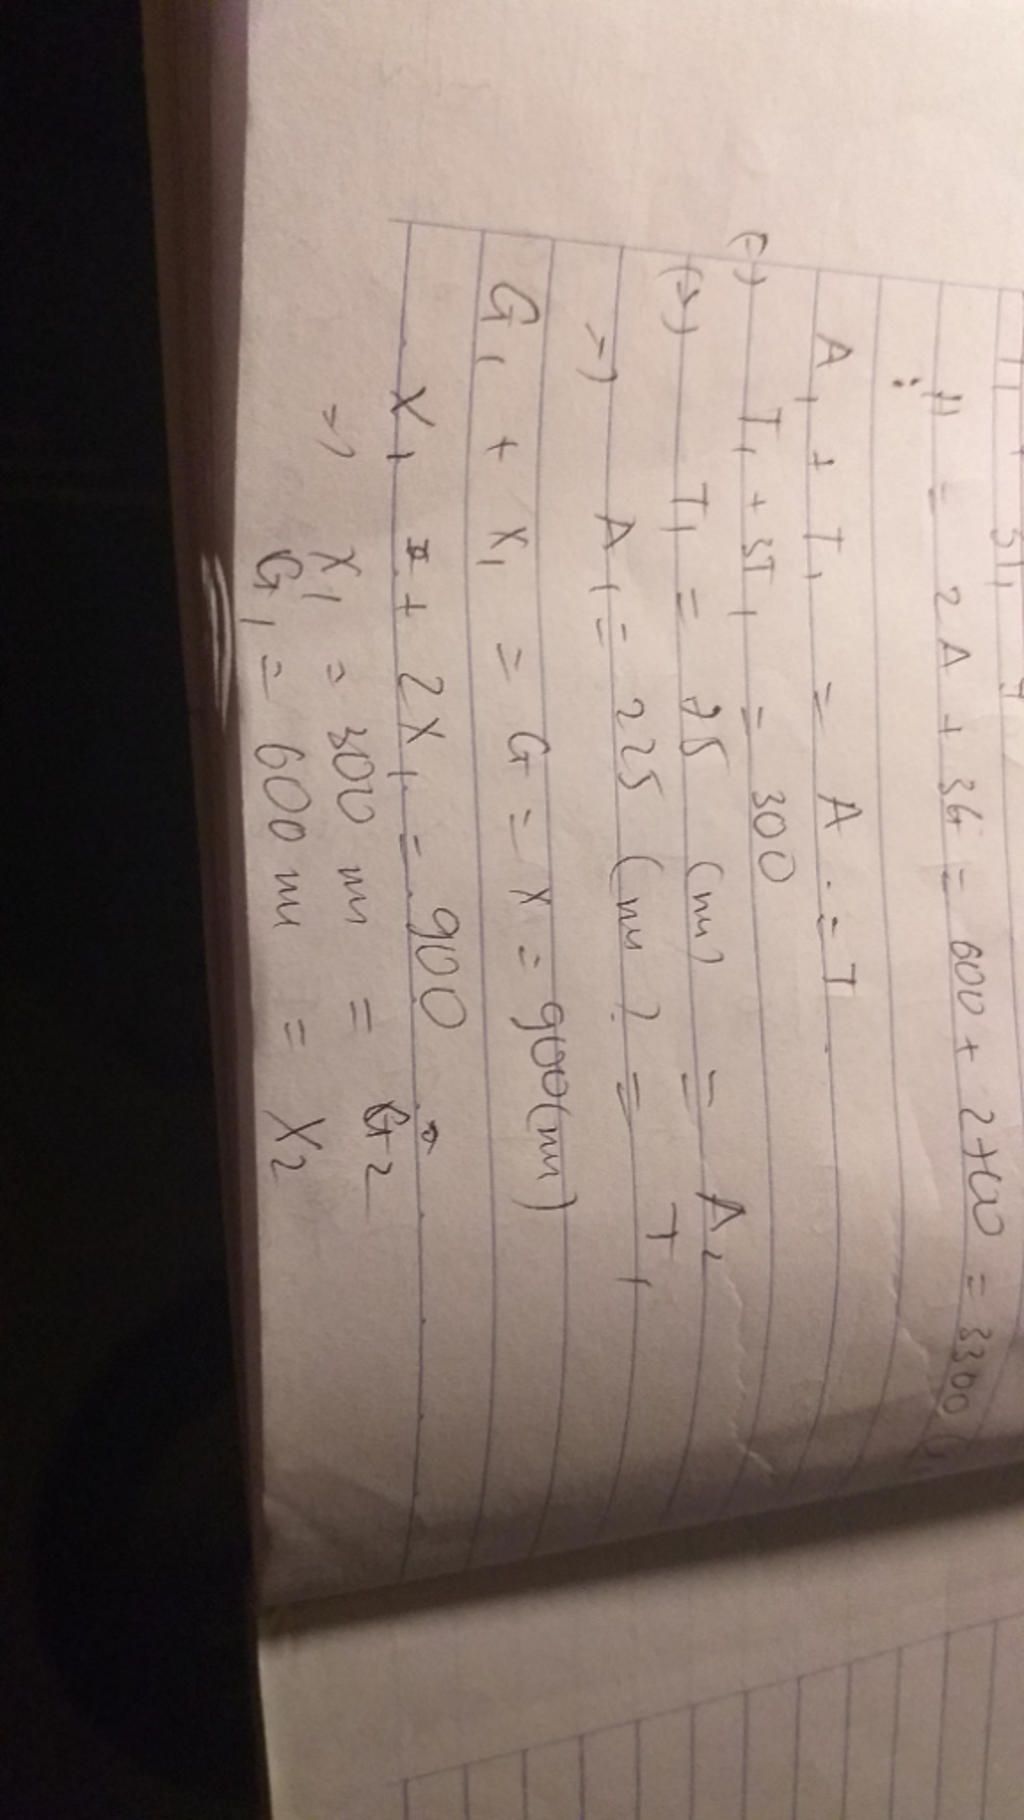 T1 + 3T1
H = 2A + 3G = 600 + 2700 = 3300
A1 + T1 = A = T
(=) T1 + 3T1 = 300
(=) T1 = 75 (nu) = A2
=) A1 = 225 (nu) = T2
G1 + X1 = G = X = 900 (nu)
X1 + 2X1 = 900
=) X1 = 300 nu = G2
G1 = 600 nu = X2